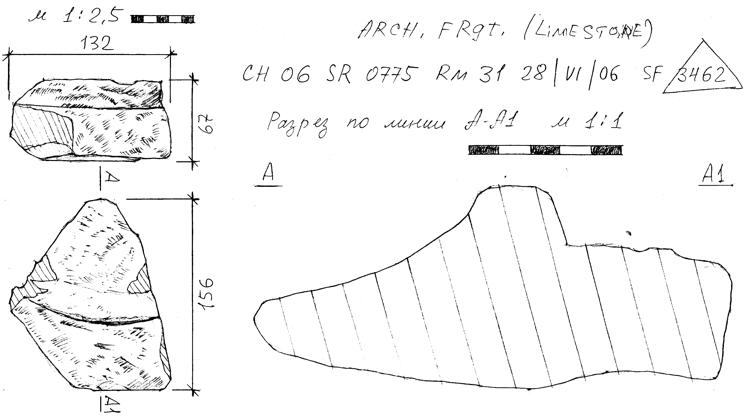 м 1:2,5
132
67
A
156
A1
ARCH. FRgt. (LIMESTONE)
CH 06 SR 0775 RM 31 28|VI|06 SF 3462
Разрез по линии A-A1 м 1:1
A
A1